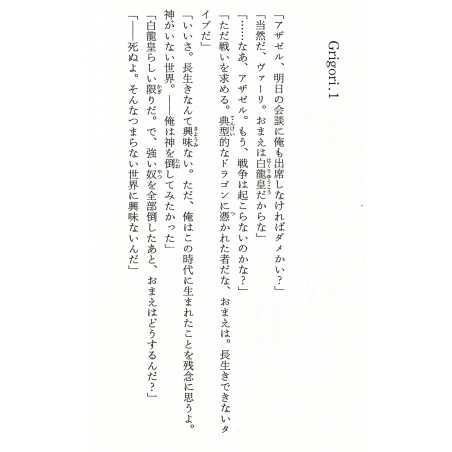 Grigori.1
「アザゼル、明日の会談に俺も出席しなければダメかい？」
「当然だ、ヴァーリ。おまえは白龍皇だからな」
「……なあ、アザゼル。もう、戦争は起こらないのかな？」
「ただ戦いを求める。典型的なドラゴンに憑かれた者だな、おまえは。長生きできないタ
イプだ」
「いいさ。長生きなんて興味ない。ただ、俺はこの時代に生まれたことを残念に思うよ。
神がいない世界。――俺は神を倒してみたかった」
「白龍皇らしい限りだ。で、強い奴を全部倒したあと、おまえはどうするんだ？」
「――死ぬよ。そんなつまらない世界に興味ないんだ」